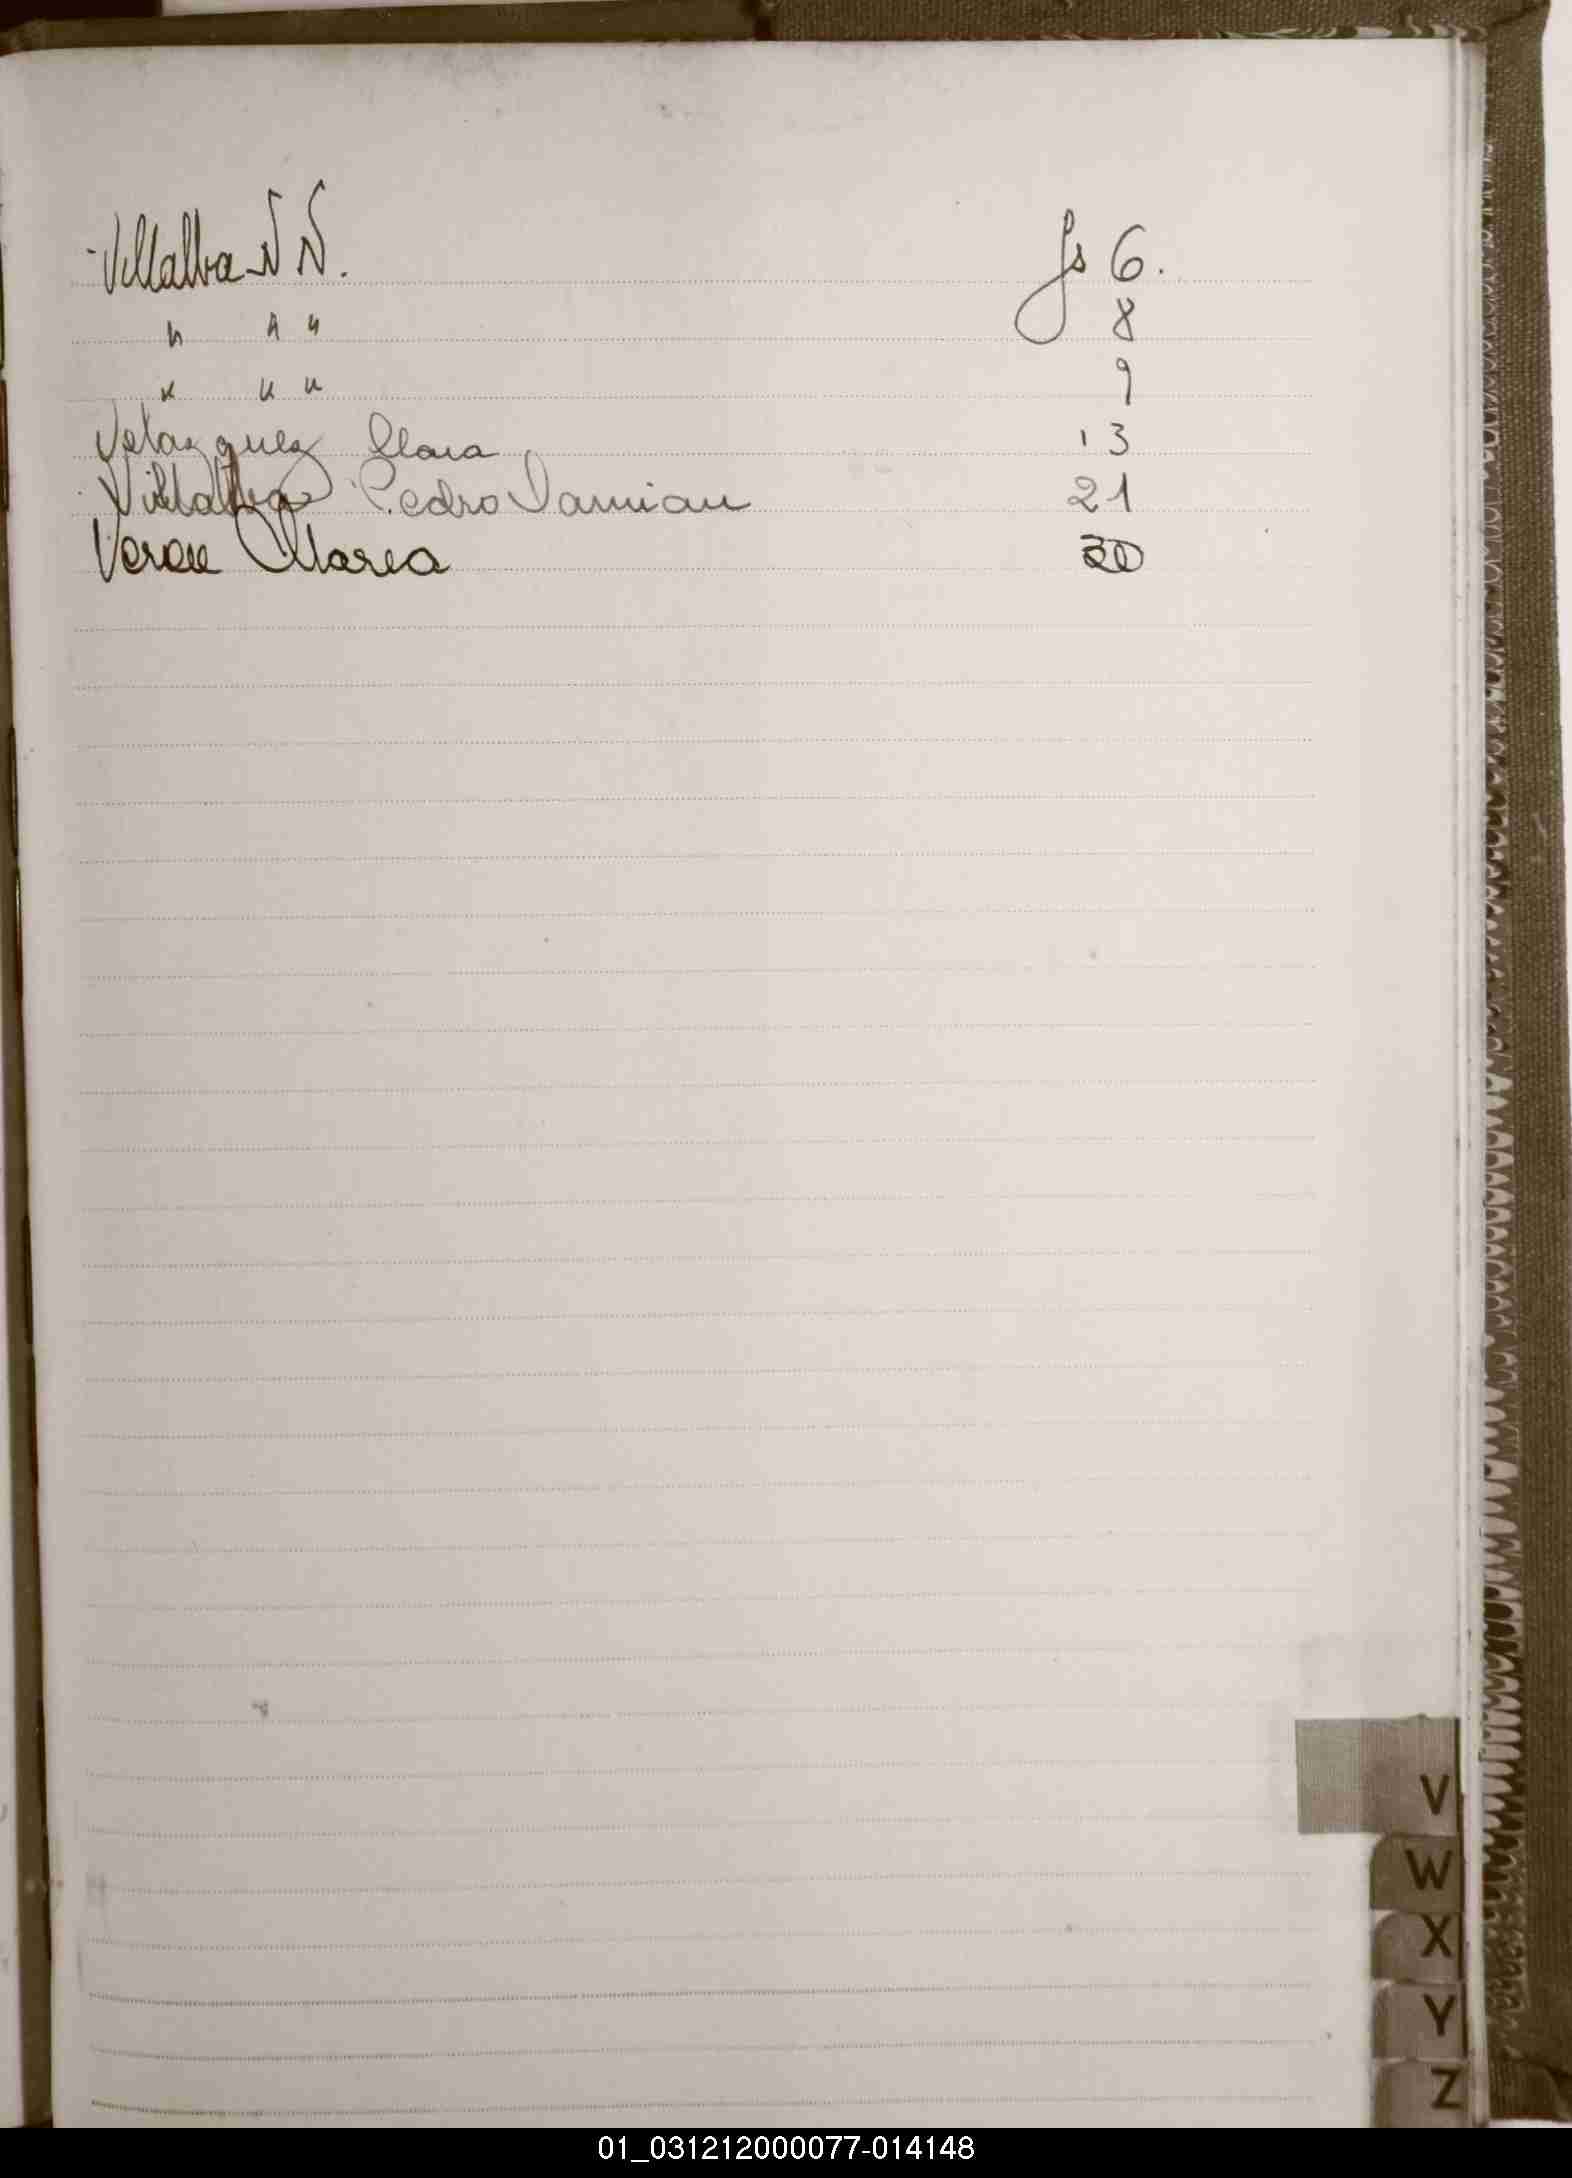 Villalba N N. fs 6.
" " " 8
" " " 9
Velazquez Clara 13
Villalba Pedro Damian 21
Veron Maria 30
V
W
X
Y
Z
01_031212000077-014148